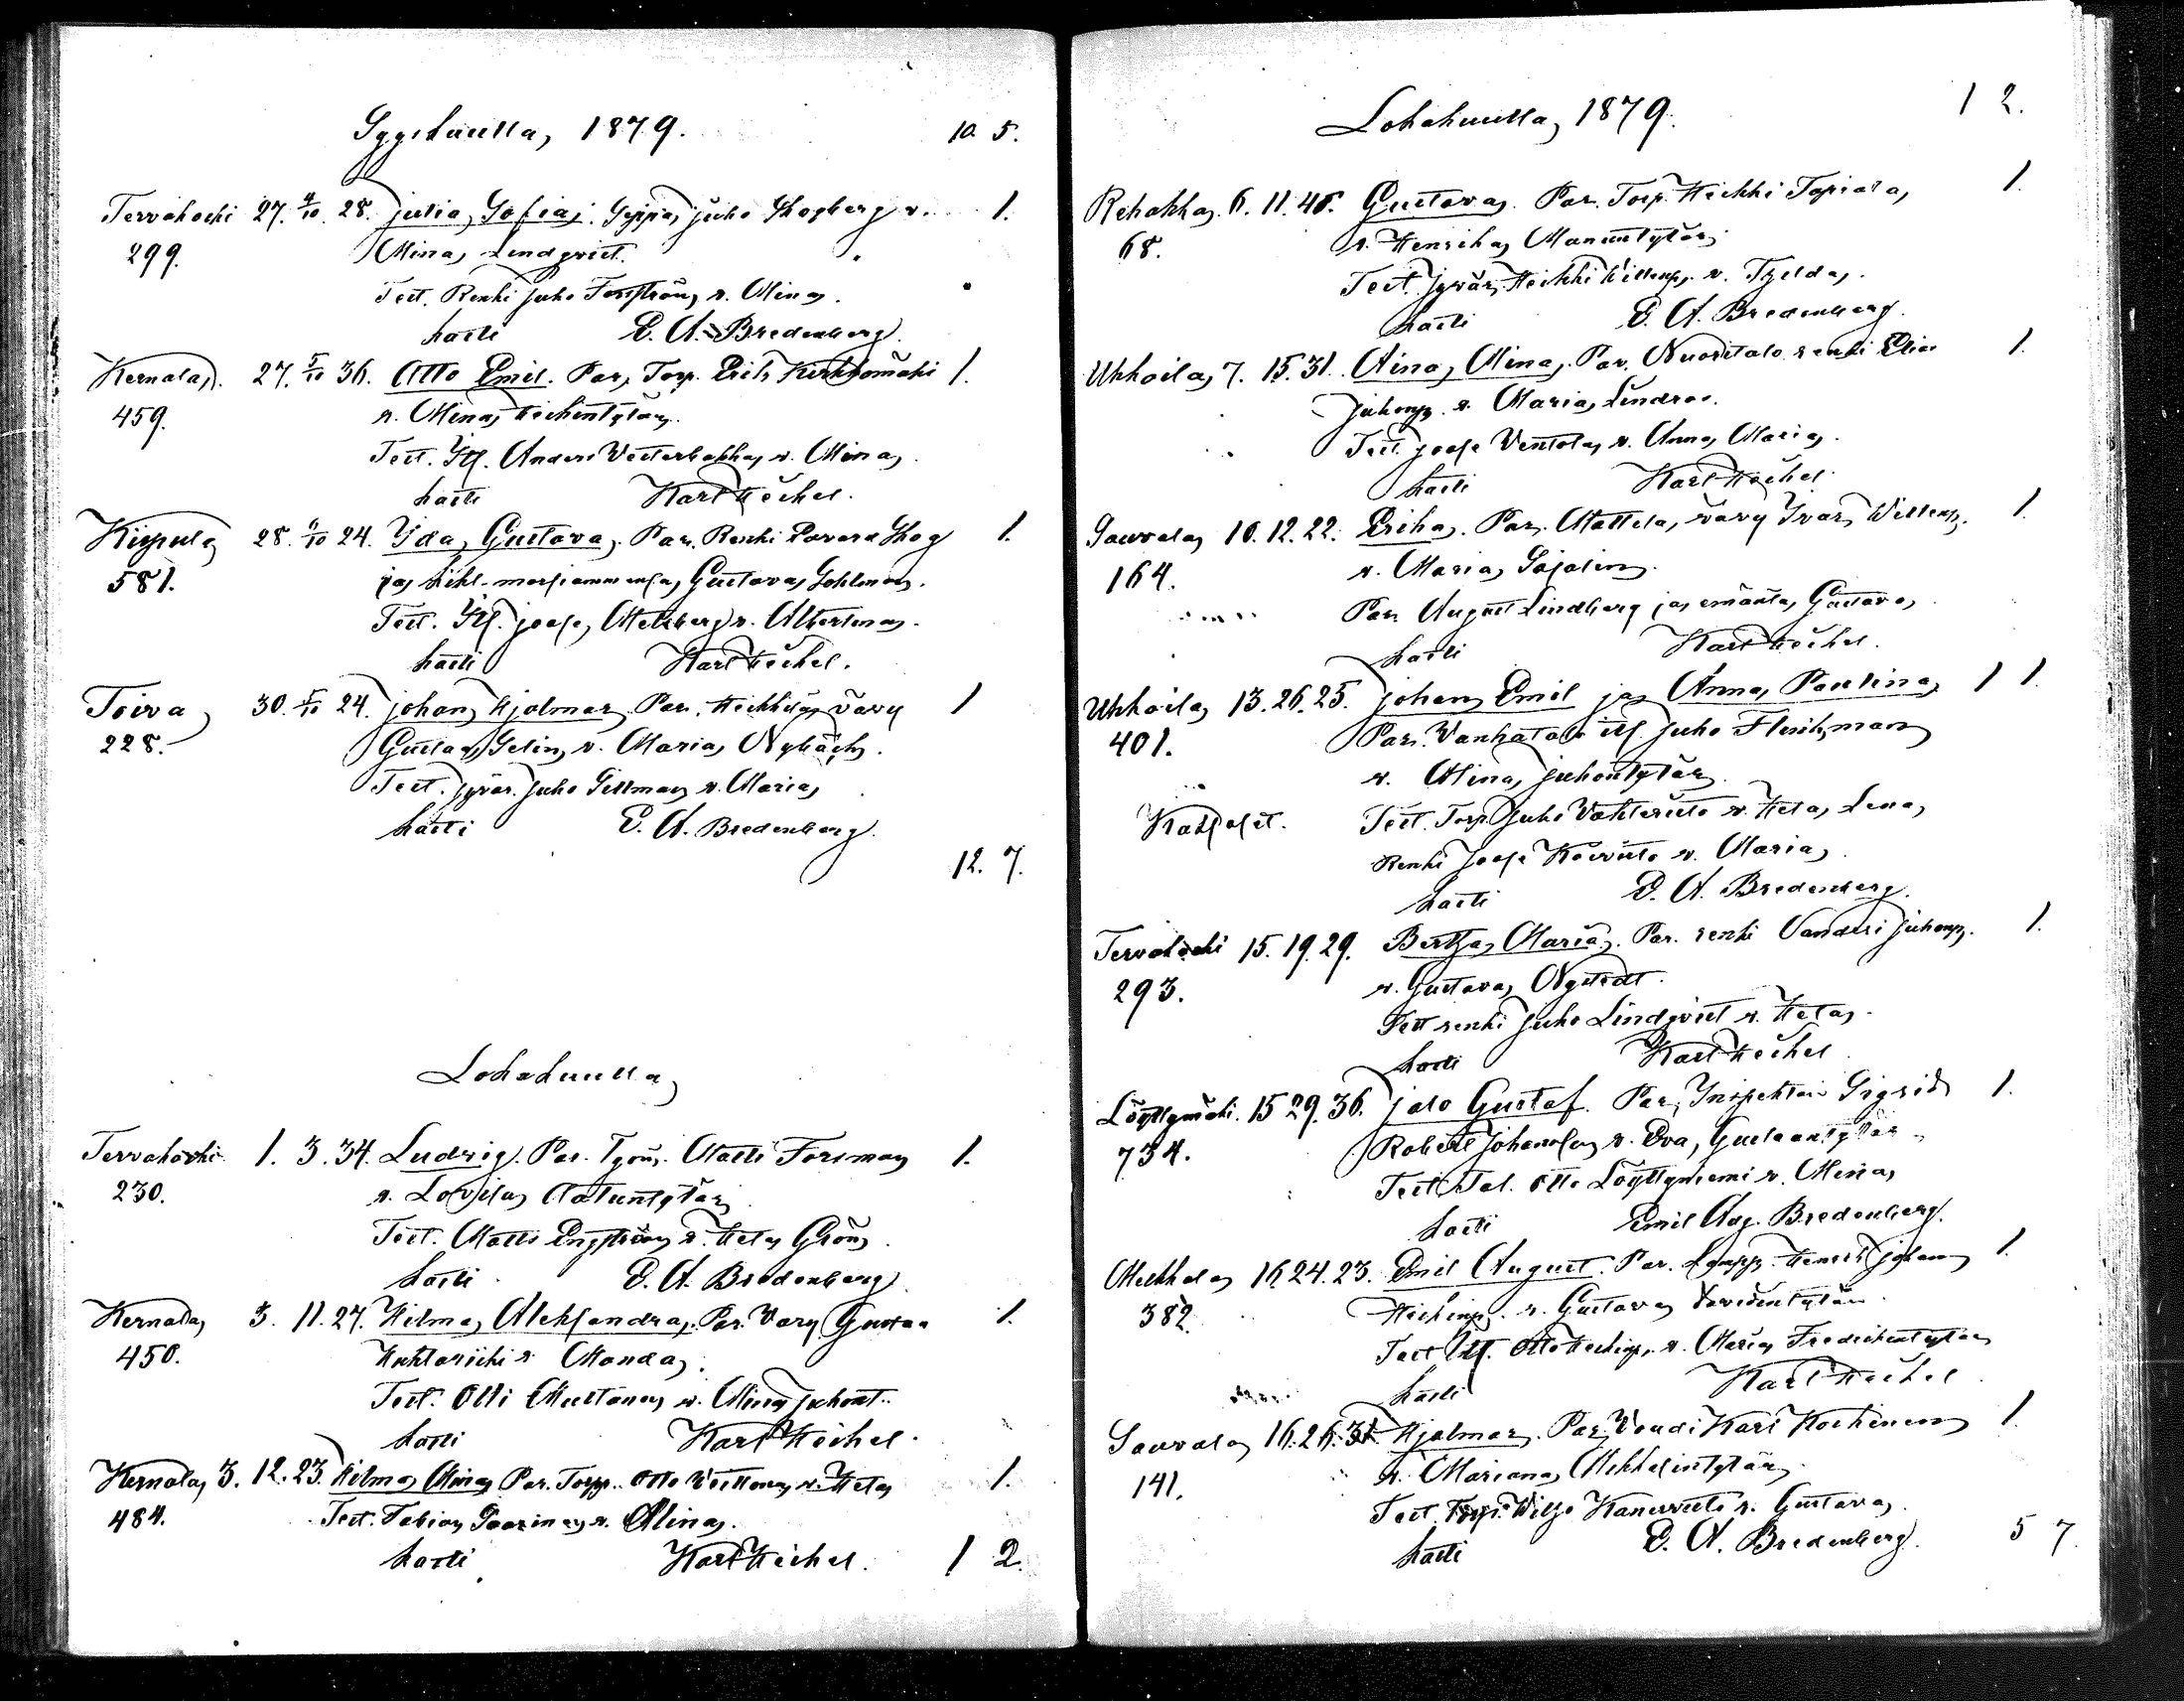 Syyskuulla, 1879. 10. 5.
Tervakoski 27. 4/10. 28. Julia, Sofia, Juho Skogberg v. 1.
299. Mina, Lindqvist.
Test. Renki Juho Forsström, v. Mina.
kasti E. A. Bredenberg.
Kernala, 27. 5/10 36. Otto Emil. Par, Torp. Erik Kirkkomäki 1.
459. v. Mina, Heikintytär.
Test. Itl. Anders Vesterbakka, v. Mina,
kasti Karl Heikel.
Kiipula 28. 24. Ida, Gustava, Par. Renki Skog 1.
581. ja, Gustava, Sohlman.
Test. Itl. Joose, v. Albertina.
kasti Karl Heikel.
Toiva, 30. 5/10 24. Johan, Hjalmar, Par. Heikkilä, vävy 1
228. Gustaa, Selin, v. Maria, Nybäck.
Test. Juho Sillman, v. Maria,
kasti E. A. Bredenberg.
12. 7.
Lokakuulla,
Tervakoski 1. 3. 34. Ludvig. Par. Työm. Matti Forsman 1.
230. v. Lovisa, Aatuntytär,
Test. Matts Engström, v. Heta, Grön,
kasti E. A. Bredenberg
Kernala, 3. 11. 27. Hilma, Aleksandra, Par. Vävy Gustaa 1.
450. v. Manda,
Test. Otti Mustonen, v. Mina, Juhont..
kasti Karl Heikel.
Kernala, 3. 12. 23. Hilma, Mina, Par. Torpp. Otto v. Heta, 1.
484. Test. Fabian, v. Mina.
kasti Karl Heikel. 1 2.
Lokakuulla, 1879. 1 2.
Rehakka, 6. 11. 48. Gustava, Par. Torp. Heikki Tapiola, 1.
68. v. Henrika, Manuntytär,
Test. Heikki Villenp. v. Tyelda,
kasti E. A. Bredenberg.
Uhkoila, 7. 15. 31. Aina, Mina, Par. Nuoritalo renki Elia 1.
Juhonp. v. Maria, Lindroo.
Test. Joose Ventola, v. Anna, Maria.
kasti Karl Heikel
Sauvala, 10. 12. 22. Erika, Par. Mattila, vävy Ivar, Villenp. 1.
164. v. Maria, Sjalin.
Par. August Lindberg ja, emäntä, Gustava,
kasti Karl Heikel.
Uhkoila, 13. 26. 25. Johan, Emil ja, Anna, Paulina, 1 1.
401. Par. Vanhatalo itl. Juho Flinkman
v. Mina, Juhontytär,
Kaksoset. Test. Torp. Juho v. Heta, Lena,
Renki Joose Koivisto v. Maria,
kasti E. A. Bredenberg.
Tervakoski 15. 19. 29. Bertha, Maria, Par. renki Vanderi Juhonp. 1.
293. v. Gustava, Nystedt.
Test renki Juho Lindqvist v. Heta,
kasti Karl Heikel
Löyttymäki. 15 29. 36. Jalo Gustaf. Par, Inspehtori Sigrid 1.
734. Robert Johansson, v. Eva, Gustaantytär
Test. Tal. Otto Löyttyniemi v. Mina,
kasti Emil Aug. Bredenberg.
Mekkola, 16 24. 23. Emil August. Par. Henrik Johan, 1.
382. Heikinp. v. Gustava,
Test Itl. Otto Heikinp, v. Maria, Fredrikintytär
kasti Karl Heikel
Sauvala, 16. 26. 31. Hjalmar, Par, Voudi Karl Koskinen 1.
141. v. Mariana, Mikkelintytär,
Test. Torp. Viljo Kanervisto v. Gustava,
kasti E. A. Bredenberg. 5 7.